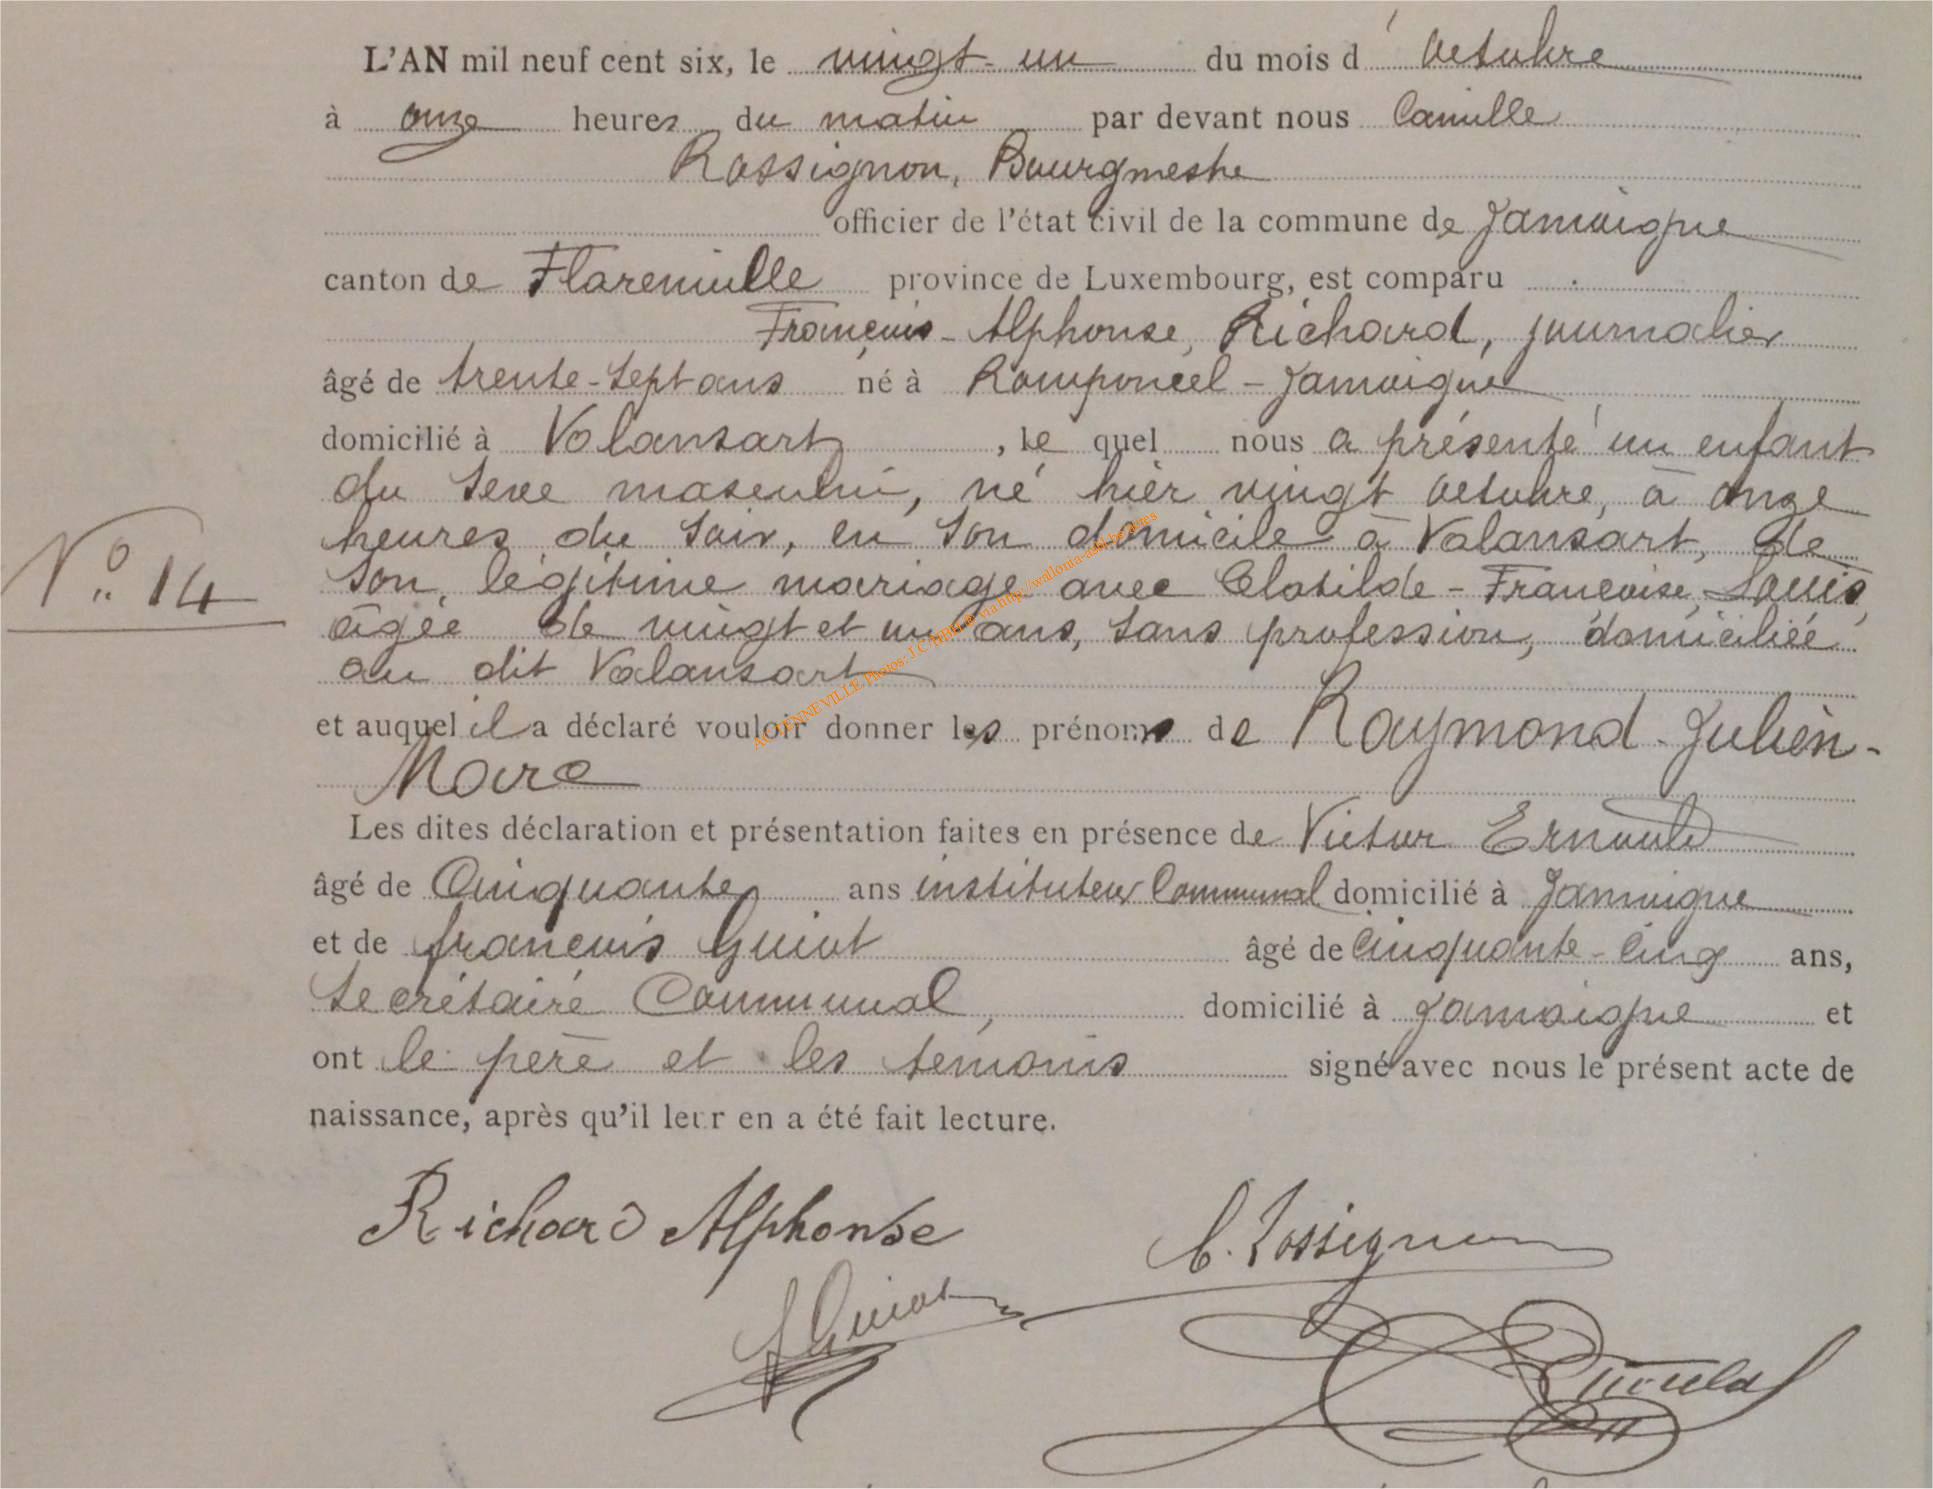 L'AN mil neuf cent six, le vingt-un du mois d'octobre
à onze heures du matin par devant nous Camille
Rossignon, Bourgmestre
officier de l'état civil de la commune de Jamoigne
canton de Florenville province de Luxembourg, est comparu
François-Alphonse, Richard, journalier
âgé de trente-sept ans né à Romponcel-Jamoigne
domicilié à Valansart, le quel nous a présenté un enfant
du sexe masculin, né hier vingt octobre, à onze
heures du soir, en son domicile à Valansart, de
son légitime mariage avec Clotilde-Françoise, Louis,
N° 14
âgée de vingt et un ans, sans profession, domiciliée
au dit Valansart
et auquel il a déclaré vouloir donner les prénoms de Raymond-Julien-
Marc
Les dites déclaration et présentation faites en présence de Victor Ernould
âgé de Cinquante ans instituteur Communal domicilié à Jamoigne
et de françois Guiot âgé de Cinquante-Cinq ans,
secrétaire Communal, domicilié à Jamoigne et
ont le père et les témoins signé avec nous le présent acte de
naissance, après qu'il leur en a été fait lecture.
Richard Alphonse
C. Rossignon
f Guiot
Ernould